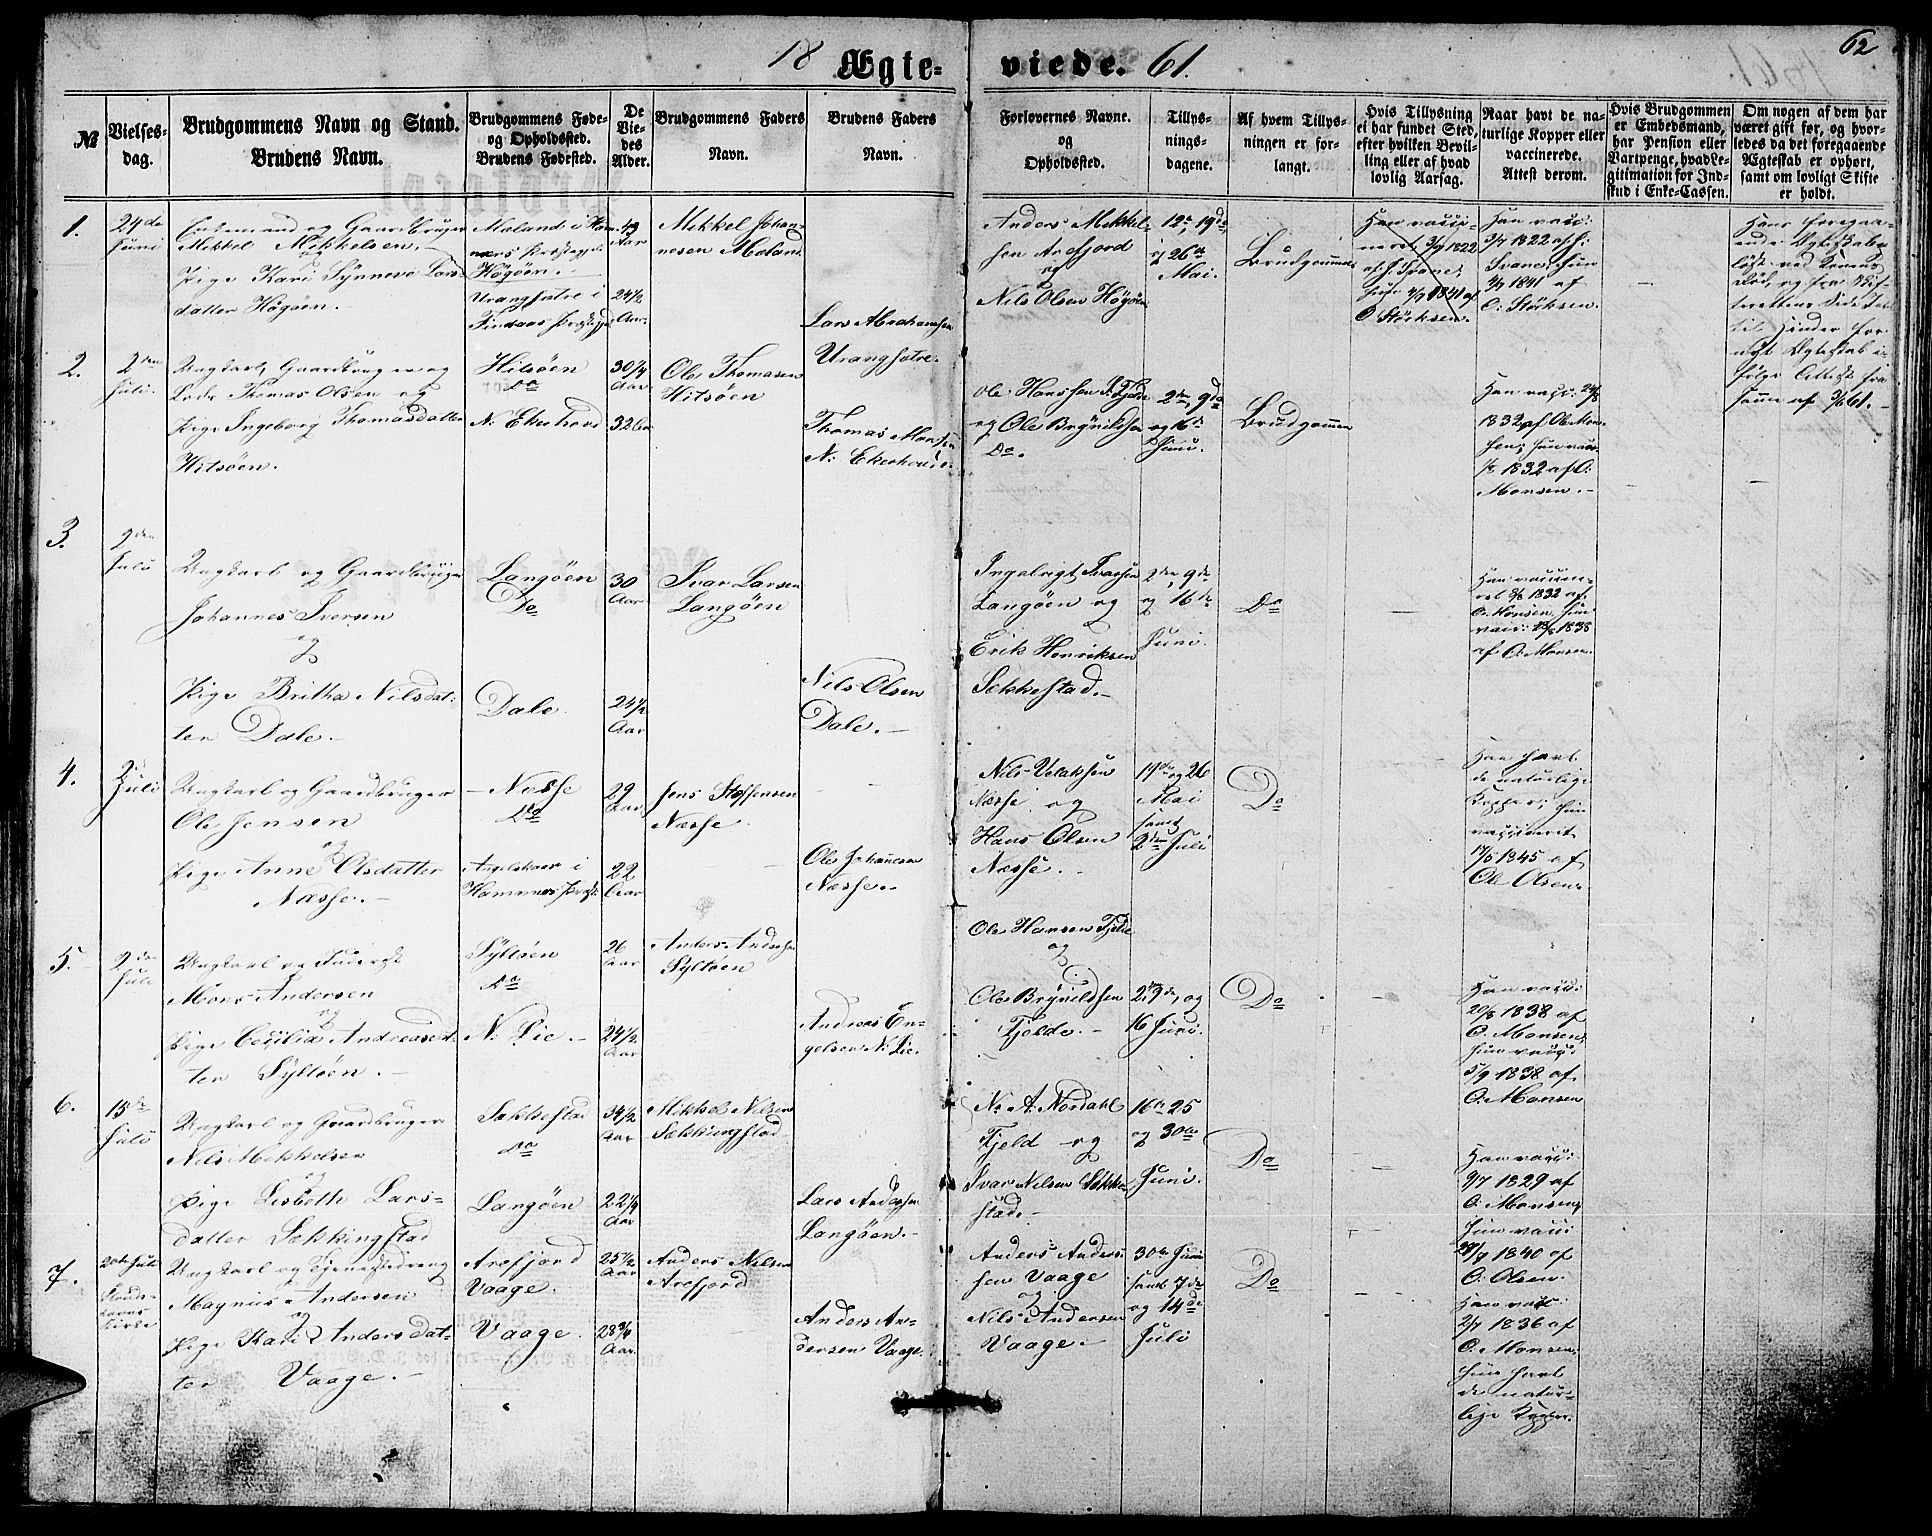 62
18 Ægteviede. 61.
№
Vielses-
dag.
Brudgommens Navn og Stand.
Brudens Navn.
Brudgommens Føde-
og Opholdssted.
Brudens Fødested.
De
Vie-
des
Alder.
Brudgommens Faders
Navn.
Brudens Faders
Navn.
Forlovernes Navne.
og
Opholdssted.
Tillys-
nings-
dagene.
Af hvem Tillys-
ningen er for-
langt.
Hvis Tillysning
ei har fundet Sted,
efter hvilken Bevil-
ling eller af hvad
lovlig Aarsag.
Naar havt de na-
turlige Kopper eller
vaccinerede.
Attest derom.
Hvis Brudgommen
er Embedsmand,
har Pension eller
Vartpenge, hvad Le-
gitimation for Ind-
skud i Enke-Cassen.
Om nogen af dem har
været gift før, og hvor-
ledes da det foregaaende
Ægteskab er ophørt,
samt om lovligt Skifte
er holdt.
1.
24de
Juni
Enkemand og Gaardbruger
Mikkel Mikkelsen
og
Pige Kari Synneva Lars-
datter Högöen.
Moland i Ham-
Högöen.
Urangsatre i
Findaas
49
Aar
24½
Aar
Mikkel Johan-
nesen Moland
Lars Abrahamsen
Urangsatre.
Anders Mikkel-
sen Arefjord
og
Nils Olsen Högöen
12te, 19de
og 26de
Mai.
Brudgommen
Han vacci-
neret 3/9 1822
af J. Svane;
hun 4/9 1841 af
O. Störksen.
Han vacc:
3/9 1822 af J:
Svane; hun
4/9 1841 af
O: Störksen.
Hans forega-
ende Ægteskab
löst ved Konens
Död, og fra Skif-
terettens Side In-
tet til Hinder for
nyt Ægteskab i-
fölge Attest fra
samme af 3/6 61.
2.
2den
Juli.
Ungkarl, Gaardbruger og
Lods Thomas Olsen og
Pige Ingeborg Thomasdatter
Hitsöen.
Hitsöen
Do
N: Ekerhovd
30¼
Aar
32 Aar
Ole Thomasen
Hitsöen
Thomas Monsen
N: Ekerhovd.
Ole Hanssen Fjelde
og Ole Brynildsen
Do.
2den, 9de
og 16de
Juni.
Brudgommen
Han vacc: 24/8
1832 af Ole Mon-
sen; hun vacc:
1/8 1832 af O:
Monsen.
3.
2den
Juli
Ungkarl og Gaardbruger
Johannes Iversen
og
Pige Britha Nilsdat-
ter Dale.
Langöen
Do
Dale.
30
Aar
24½
Aar
Ivar Larsen
Langöen
Nils Olsen
Dale.
Ingebrigt Ivarsen
Langöen og
Erik Henriksen
Sekkestad.
2den, 9de
og 16de
Juni.
Do
Han vaccine-
ret 1832 af
O. Monsen, hun
vacc: 1838
af O. Monsen.
4.
2de
Juli
Ungkarl og Gaardbruger
Ole Jensen
og
Pige Anne Olsdatter
Næsse.
Næsse
Do
Angelskaar i
Hammer Præst:
29
Aar
22
Aar
Jens Steffensen
Næsse.
Ole Johannesen
Næsse.
Nils Velaksen
Næsse og
Hans Olsen
Næsse.
19de og 26
Mai
samt
2den Juli
Do
Han havt
de naturlige
Kopper; hun
vaccineret
17/5 1845 af
Ole Olsen.
5.
2den
Juli
Ungkarl og
Mons Andersen
og
Pige Cecilia Andreasdat-
ter Syltöen.
Syltöen
Do
N. Lie.
26
Aar
24½
Aar
Anders Andersen
Syltöen
Andreas En-
gelsen N: Lie.
Ole Hansen Fjelde
og
Ole Brynildsen
Fjelde.
2den 9de, og
16 Juni.
Do
Han vacc:
20/8 1838 af
O. Monsen;
hun vacc:
5/9 1838 af
O. Monsen
6.
15de
Juli
Ungkarl og Gaardbruger
Nils Mikkelsen
og
Pige Lisbeth Lars-
datter Sekkingstad
Sekkestad
Do
Langöen
34½
Aar
22¼
Aar
Mikkel Nilsen
Sekkingstad
Lars Andersen
Langöen.
Ns A. Nordahl
Fjeld og
Ivar Nilsen Sekke-
stad.
16de 25
og 30te
Juni.
Do
Han vacc:
9/7 1829 af
O. Monsen;
hun vacc:
29/9 1840 af
O: Olsen.
7.
20de Juli
Ungkarl og Tjenestedreng
Magnus Andersen
og
Pige Kari Andersdat-
ter Vaage.
Arefjord
Vaage.
Vaage.
25½
Aar
28¾
Aar.
Anders Nilsen
Arefjord
Anders An-
dersen Vaage
Anders Anders-
sen Vaage
og
Nils Andersen
Vaage.
30te Juni
samt 7de
og 14de
Juli
Do
Han vacc
2/7 1836 af
O. Monsen,
hun havt
de natur-
lige Kopper.